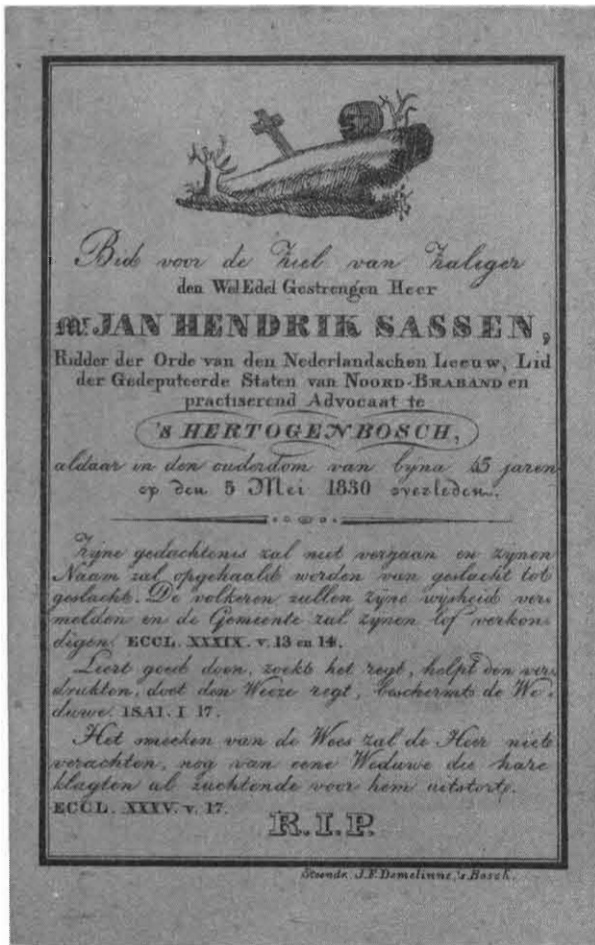 Bid voor de Ziel van Zaliger
den WelEdel Gestrengen Heer
Mr JAN HENDRIK SASSEN,
Ridder der Orde van den Nederlandschen Leeuw, Lid
der Gedeputeerde Staten van NOORD-BRABAND en
practiserend Advocaat te
's HERTOGENBOSCH,
aldaar in den ouderdom van byna 45 jaren
op den 5 Mei 1830 overleden.
Zijne gedachtenis zal niet vergaan en zijnen
Naam zal opgehaald worden van geslacht tot
geslacht. De volkeren zullen zijne wijsheid ver-
melden en de Gemeente zal zijnen lof verkon-
digen. ECCL. XXXIX. v. 13 en 14.
Leert goed doen, zoekt het regt, helpt den ver-
drukten, doet den Weeze regt, beschermt de We-
duwe. ISAI. I 17.
Het smeeken van de Wees zal de Heer niet
verachten, nog van eene Weduwe die hare
klagten al zuchtende voor hem uitstort.
ECCL. XXXV. v. 17.
R.I.P.
Steendr. J.F. Demelinne, 's Bosch.